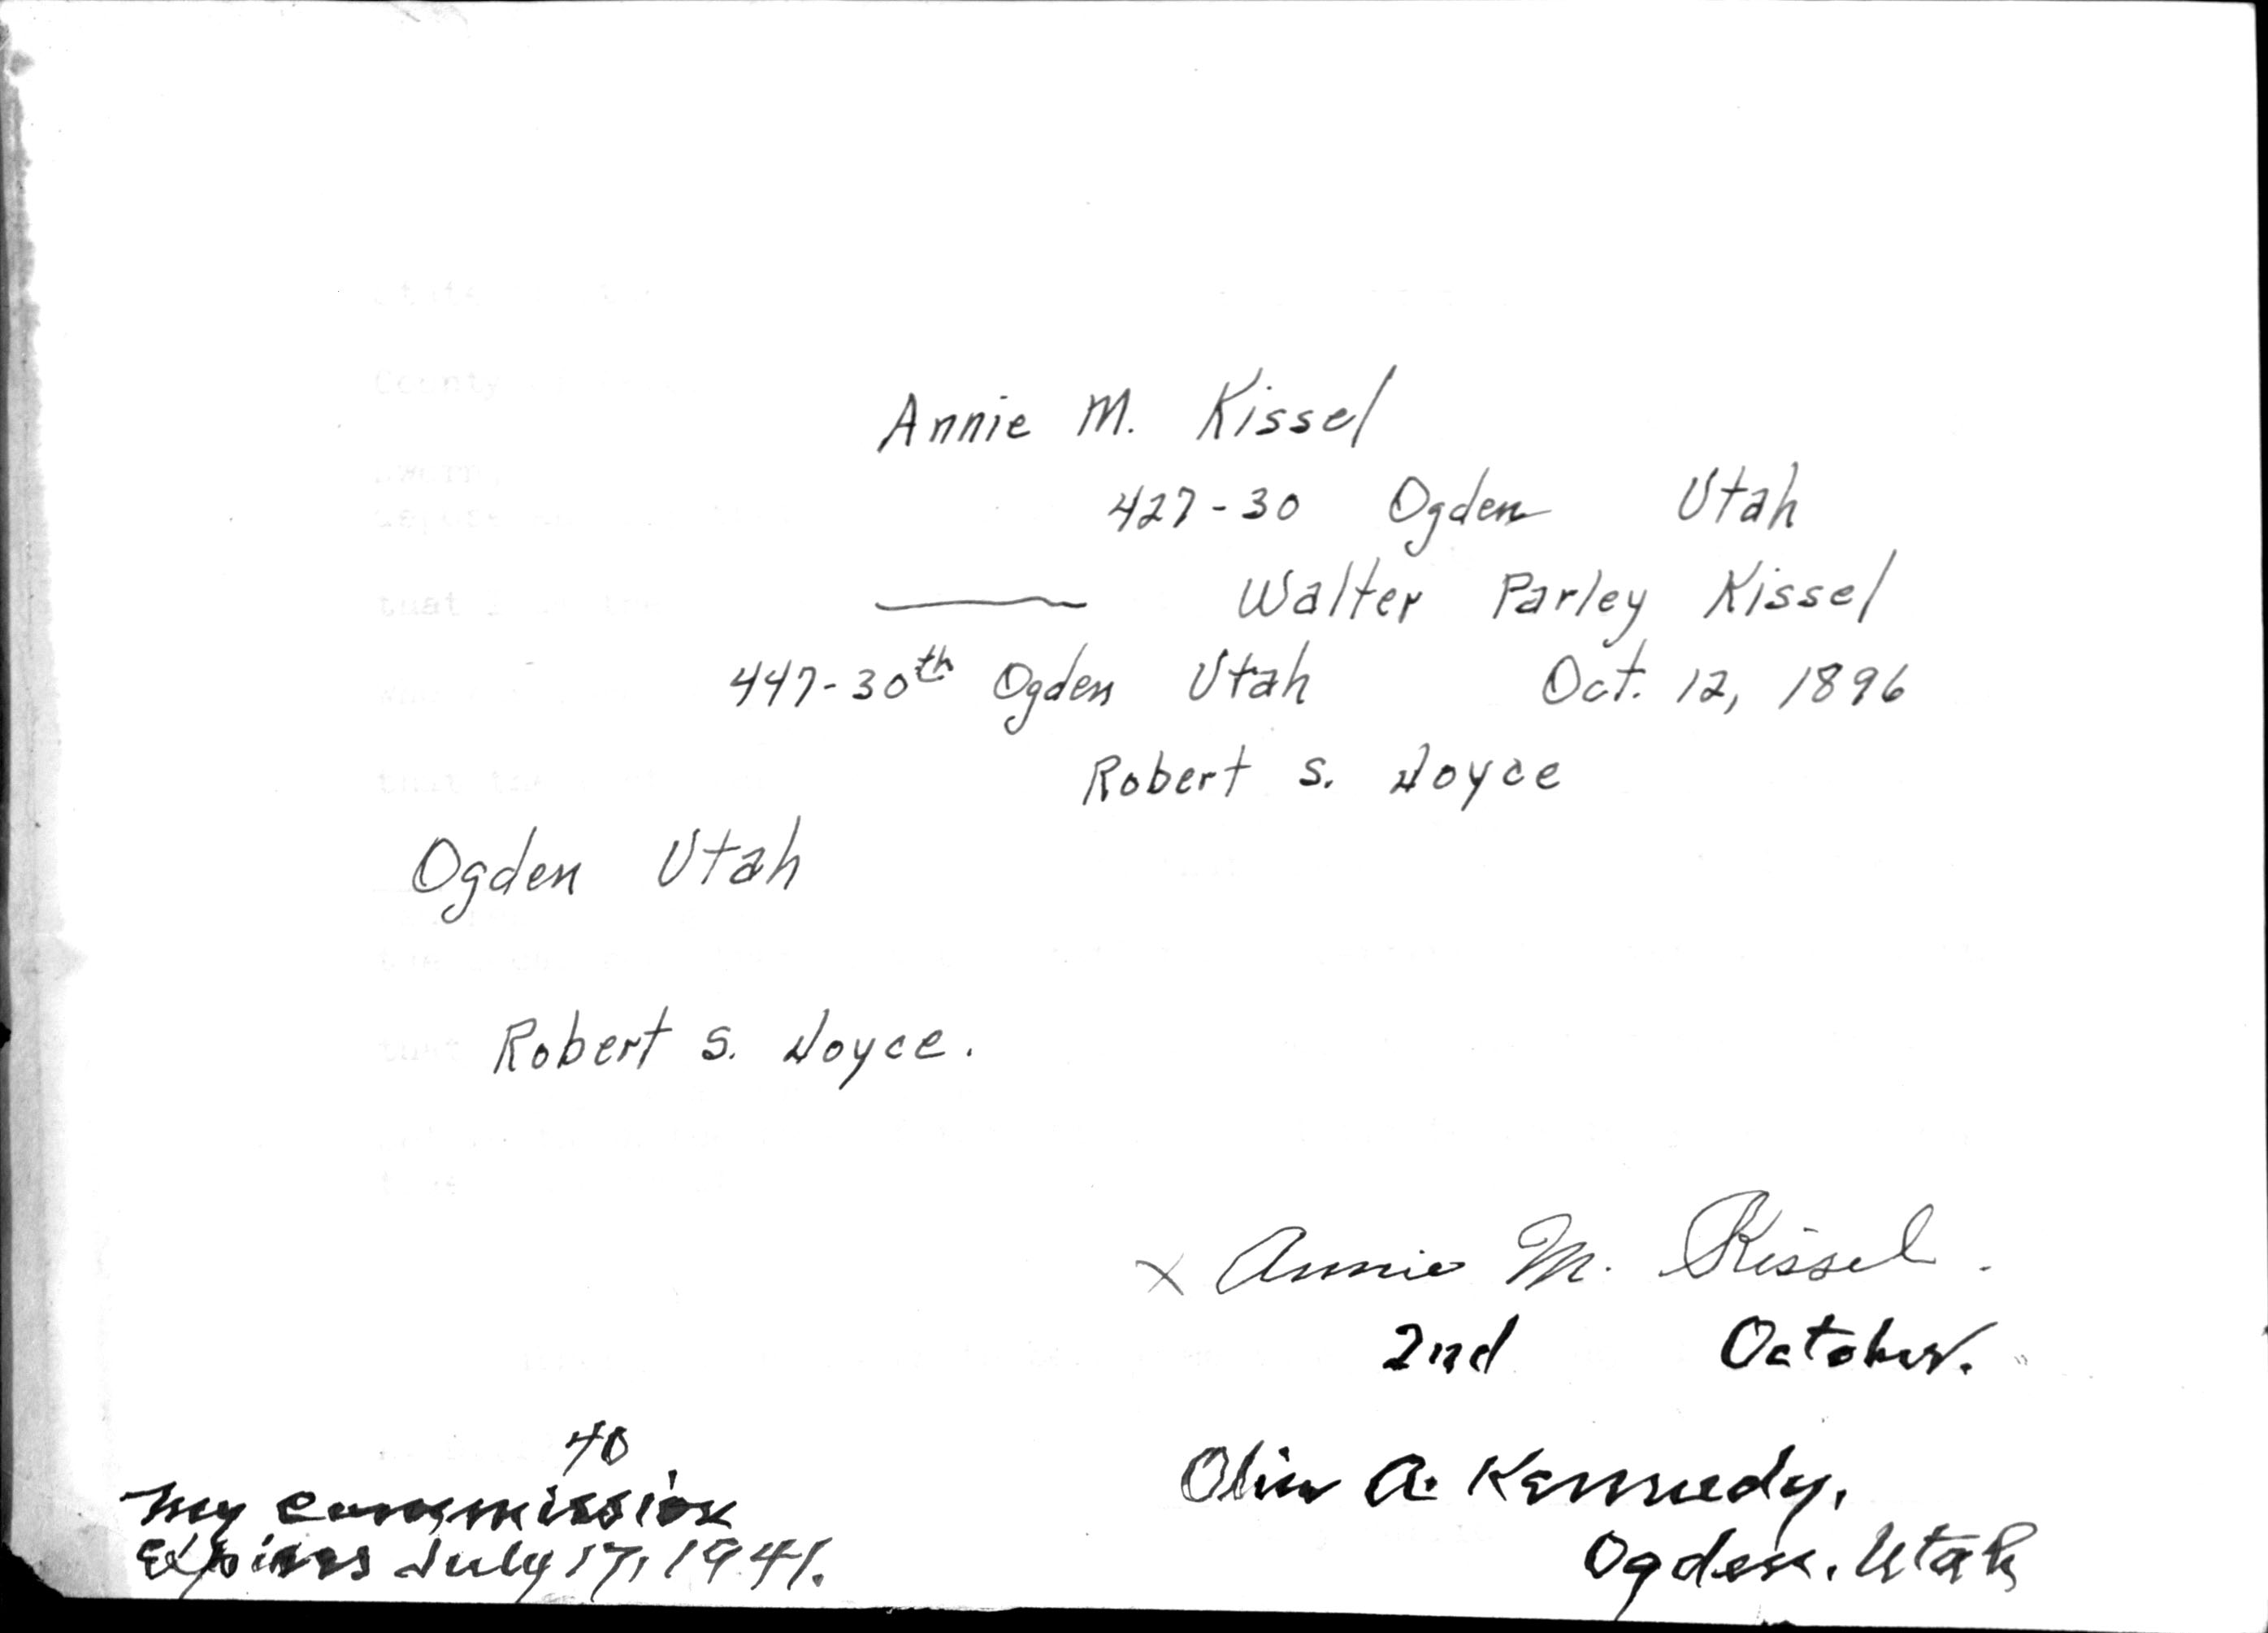 County
that
that
Annie M. Kissel
427-30 Ogden Utah
Walter Parley Kissel
447-30th Ogden Utah Oct. 12, 1896
Robert S. Joyce
Ogden Utah
Robert S. Joyce.
x Annie M. Kissel.
2nd October.
40
My commission
Expires July 17, 1941.
Olin A. Kennedy,
Ogden, Utah